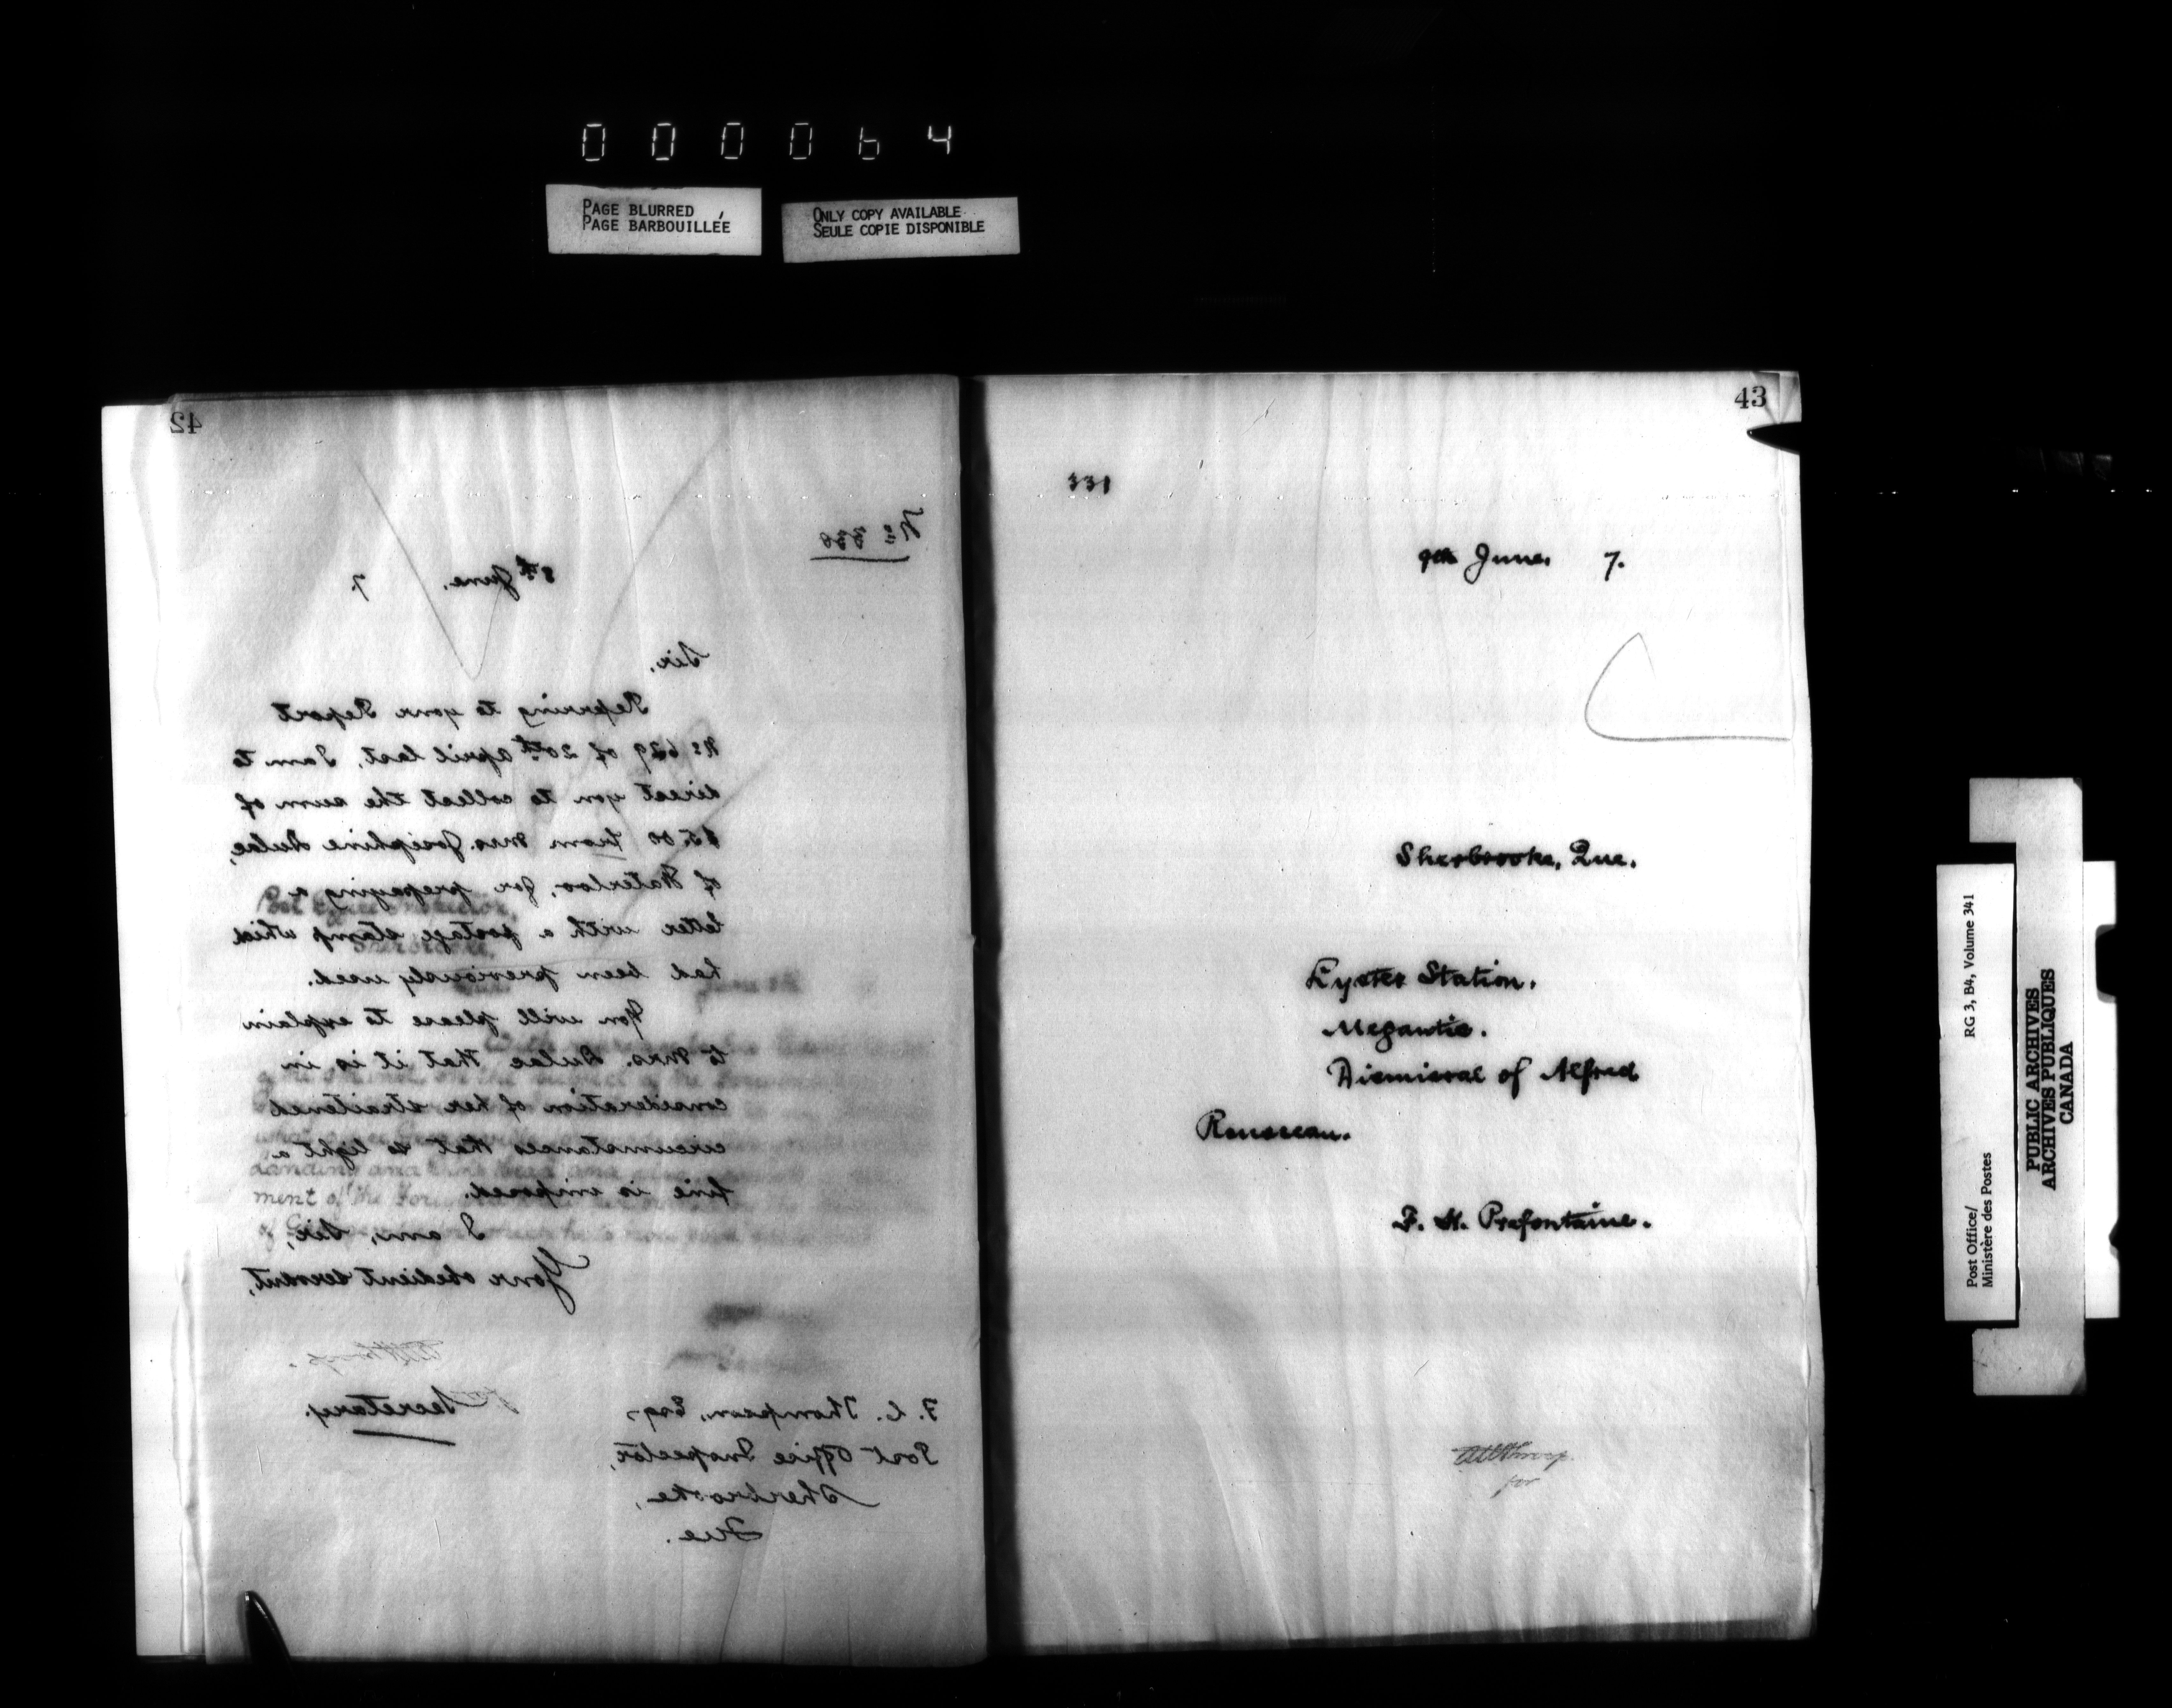 000064
PAGE BLURRED
PAGE BARBOUILLÉE
ONLY COPY AVAILABLE
SEULE COPIE DISPONIBLE
42
No 330
8th June. 7.
Sir,
Referring to your Report
No 629 of 20th April last, I am to
direct you to collect the sum of
$5.00 from Mrs. Josephine Dulac,
of Waterloo, for prepaying a
letter with a postage stamp which
had been previously used.
You will please to explain
to Mrs. Dulac that it is in
consideration of her straitened
circumstances that so light a
fine is imposed.
I am, Sir,
Your obedient servant,
for
Secretary.
F. C. Thompson, Esq,
Post Office Inspector,
Sherbrooke,
Que.
43
331
9th June. 7.
Sherbrooke, Que.
Lyster Station.
Megantic.
Dismissal of Alfred
Rousseau.
F. H. Prefontaine.
for
Post Office/
Ministère des Postes
RG 3, B4, Volume 341
PUBLIC ARCHIVES
ARCHIVES PUBLIQUES
CANADA